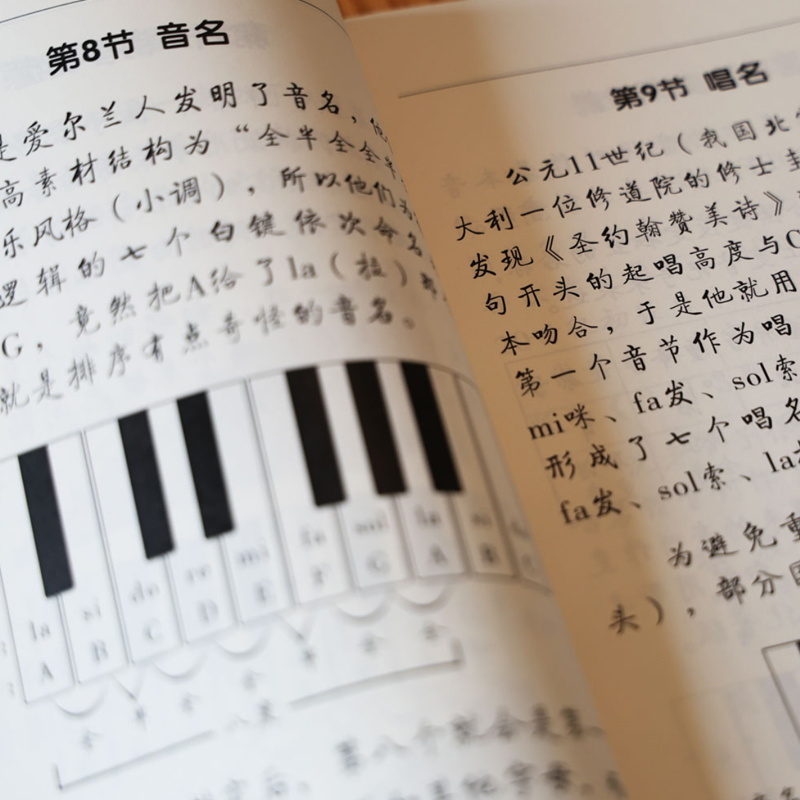 第8节 音名
是爱尔兰人发明了音名，他
高素材结构为“全半全全半
乐风格（小调），所以他们
逻辑的七个白键依次命名
G，竟然把A给了la（拉）
就是排序有点奇怪的音名。
la si do re mi fa sol la si
A B C D E F G A B C
全 半 全 全 半 全 全
八度
第八个就会是第
第9节 唱名
公元11世纪（我国北
大利一位修道院的修士圭
发现《圣约翰赞美诗》
句开头的起唱高度与C
本吻合，于是他就用
第一个音节作为唱
mi咪、fa发、sol索
形成了七个唱名
fa发、sol索、la
为避免重
头），部分